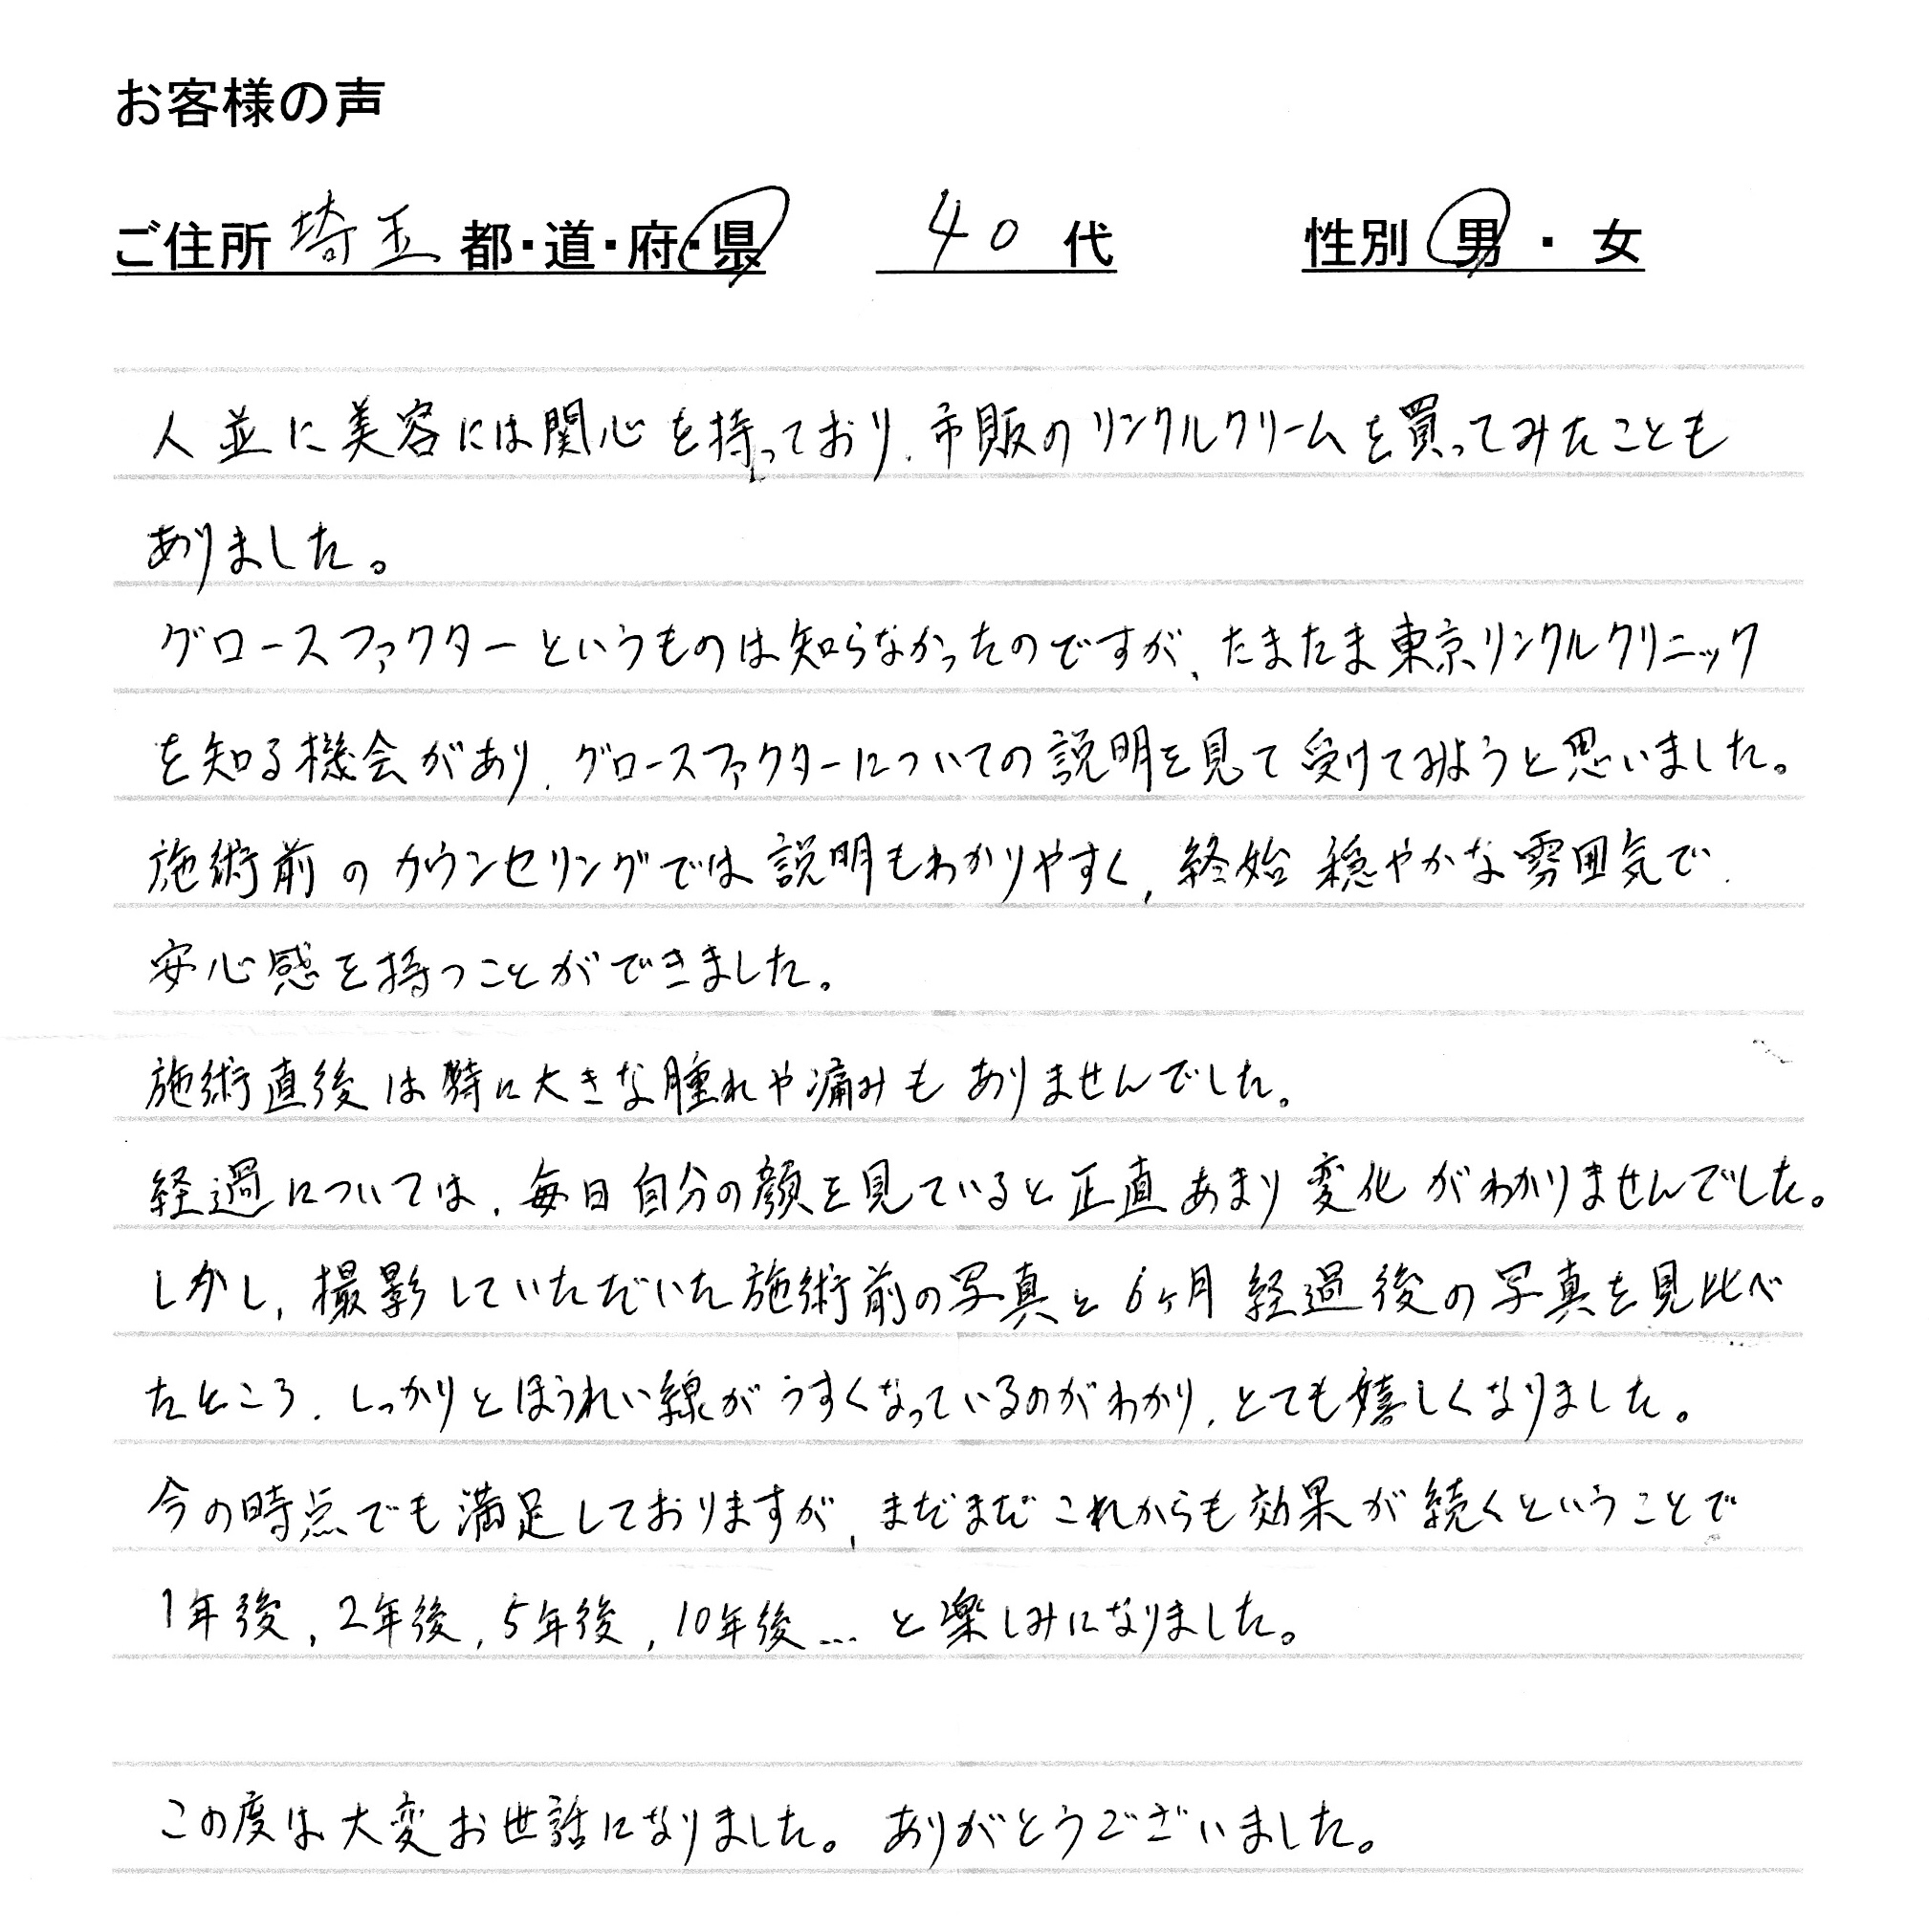 お客様の声
ご住所 埼玉 都・道・府・県 40 代 性別 男 ・ 女
人並に美容には関心を持っており、市販のリンクルクリームを買ってみたことも
ありました。
グロースファクターというものは知らなかったのですが、たまたま東京リンクルクリニック
を知る機会があり、グロースファクターについての説明を見て受けてみようと思いました。
施術前のカウンセリングでは説明もわかりやすく、終始穏やかな雰囲気で
安心感を持つことができました。
施術直後は特に大きな腫れや痛みもありませんでした。
経過については、毎日自分の顔を見ていると正直あまり変化がわかりませんでした。
しかし、撮影していただいた施術前の写真と6ヶ月経過後の写真を見比べ
たところ、しっかりとほうれい線がうすくなっているのがわかり、とても嬉しくなりました。
今の時点でも満足しておりますが、まだまだこれからも効果が続くということで
1年後、2年後、5年後、10年後…と楽しみになりました。
この度は大変お世話になりました。ありがとうございました。